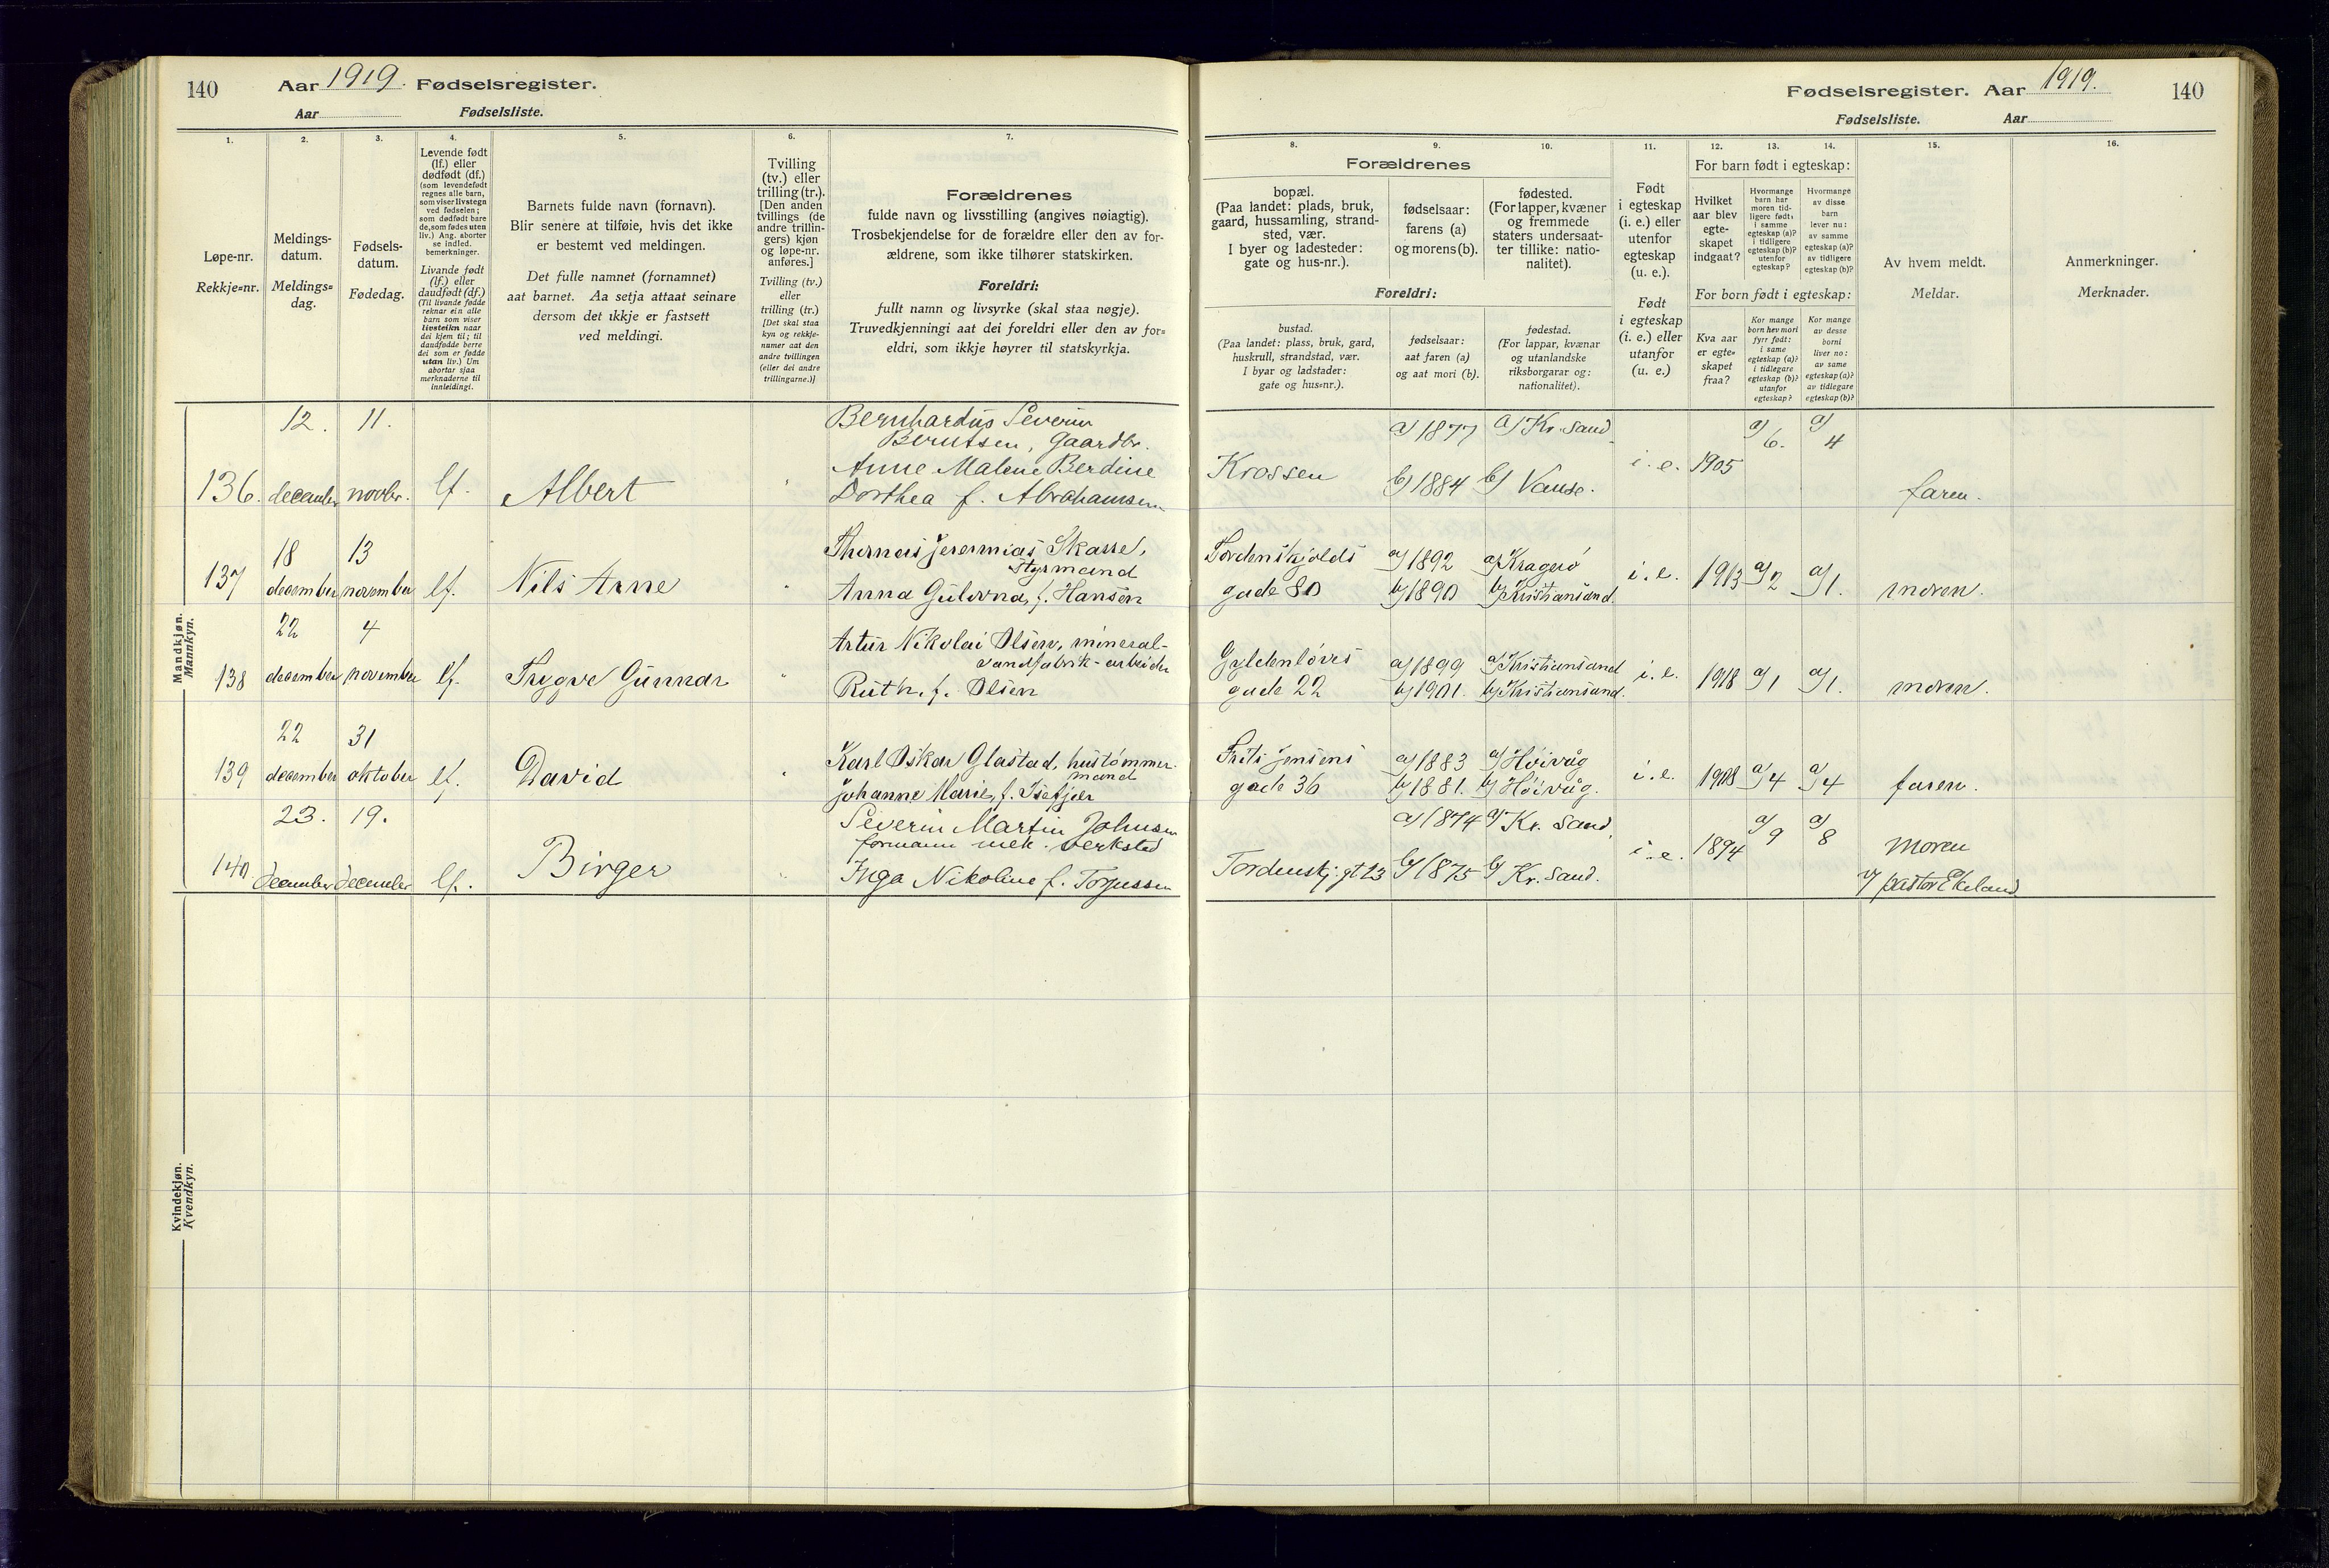 140 Aar 1919. Fødselsregister.
Aar Fødselsliste.
Fødselsregister. Aar 1919. 140
Fødselsliste. Aar
1. 2. 3. 4. 5. 6. 7.
Løpe-nr.
Rekkje=nr.
Meldings-
datum.
Meldings=
dag.
Fødsels-
datum.
Fødedag.
Levende født
(lf.) eller
dødfødt (df.)
(som levendefødt
regnes alle barn,
som viser livstegn
ved fødselen;
som dødfødt bare
de, som fødes uten
liv.) Ang. aborter
se indled.
bemerkninger.
Livande født
(lf.) eller
daudfødt (df.)
(Til livande fødde
reknar ein alle
barn som viser
livsteikn naar
dei kjem til; til
daudfødde berre
dei som er fødde
utan liv.) Um
abortar sjaa
merknaderne til
innleidingi.
Barnets fulde navn (fornavn).
Blir senere at tilføie, hvis det ikke
er bestemt ved meldingen.
Det fulle namnet (fornamnet)
aat barnet. Aa setja attaat seinare
dersom det ikkje er fastsett
ved meldingi.
Tvilling
(tv.) eller
trilling (tr.).
[Den anden
tvillings (de
andre trillin-
gers) kjøn
og løpe-nr.
anføres.]
Tvilling (tv.)
eller
trilling (tr.)
[Det skal staa
kyn og rekkje-
numer aat den
andre tvillingen
(eller dei andre
trillingarne.)]
Forældrenes
fulde navn og livsstilling (angives nøiagtig).
Trosbekjendelse for de forældre eller den av for-
ældrene, som ikke tilhører statskirken.
Foreldri:
fullt namn og livsyrke (skal staa nøgje).
Truvedkjenningi aat dei foreldri eller den av for=
eldri, som ikkje høyrer til statskyrkja.
8. 9. 10. 11. 12. 13. 14. 15. 16.
Forældrenes
bopæl.
(Paa landet: plads, bruk,
gaard, hussamling, strand-
sted, vær.
I byer og ladesteder:
gate og hus-nr.).
fødselsaar:
farens (a)
og morens (b).
fødested.
(For lapper, kvæner
og fremmede
staters undersaat-
ter tillike: natio-
nalitet).
Foreldri:
bustad.
(Paa landet: plass, bruk, gard,
huskrull, strandstad, vær.
I byar og ladstader:
gate og hus=nr.).
fødselsaar:
aat faren (a)
og aat mori (b).
fødestad.
(For lappar, kvænar
og utanlandske
riksborgarar og:
nationalitet).
Født
i egteskap
(i. e.) eller
utenfor
egteskap
(u. e.).
Født
i egteskap
(i. e.) eller
utanfor
(u. e.)
For barn født i egteskap:
Hvilket
aar blev
egte-
skapet
indgaat?
Hvormange
barn har
moren tid-
ligere født:
i samme
egteskap (a)?
i tidligere
egteskap (b)?
utenfor
egteskap?
Hvormange
av disse
barn
lever nu:
av samme
egteskap (a)?
av tidligere
egteskap (b)?
For born født i egteskap:
Kva aar
er egte=
skapet
fraa?
Kor mange
born hev mori
fyrr født:
i same
egteskap (a)?
i tidlegare
egteskap (b)?
utanfor
egteskap?
Kor mange
av desse
borni
liver no:
av same
egteskap (a)?
av tidlegare
egteskap (b)?
Av hvem meldt.
Meldar.
Anmerkninger.
Merknader.
Mandkjøn.
Mannkyn.
12. 11. Bernhardus Severin
Berntsen, Gaardbr.
Anne Malene Berdine
136. december novbr. lf. Albert " Dorthea f. Abrahamsen
Krossen a) 1877 a) Kr. Sand i. e. 1905 a) 6. a) 4
b) 1884 b) Vanse. faren.
18 13 Thomas Jeremias Skarre,
styrmand
137 desember november lf. Nils Arne " Anna Gulovna, f. Hansen
Tordenskjolds a) 1892 a) Kragerø i. e. 1913 a) 2 a) 1.
gade 80 b) 1890 b) Kristiansand. moren.
22 4 Artur Nikolai Olsen, mineral-
vandfabrik-arbeider
138 desember november lf. Trygve Gunnar " Ruth, f. Olsen
Gyldenløves a) 1899 a) Kristiansand i. e. 1918 a) 1 a) 1.
gade 22 b) 1901. b) Kristiansand. moren.
22 31 Karl Oskar Glastad, hustømmer-
mand
139 desember oktober lf. David " Johanne Marie, f. Isefjær
Frits Jensens a) 1883 a) Høivåg i. e. 1908 a) 4 a) 4
gade 36 b) 1881. b) Høivåg. faren.
23. 19. Severin Martin Johnsen
formann mek. verksted
140. december december lf. Birger " Inga Nikoline f. Torjussen
a) 1874 a) Kr. Sand, i. e. 1894 a) 9 a) 8 moren
Tordenskj. gt 23 b) 1875 b) Kr. Sand. v/ pastor Ekeland
Kvindekjøn.
Kvendkyn.